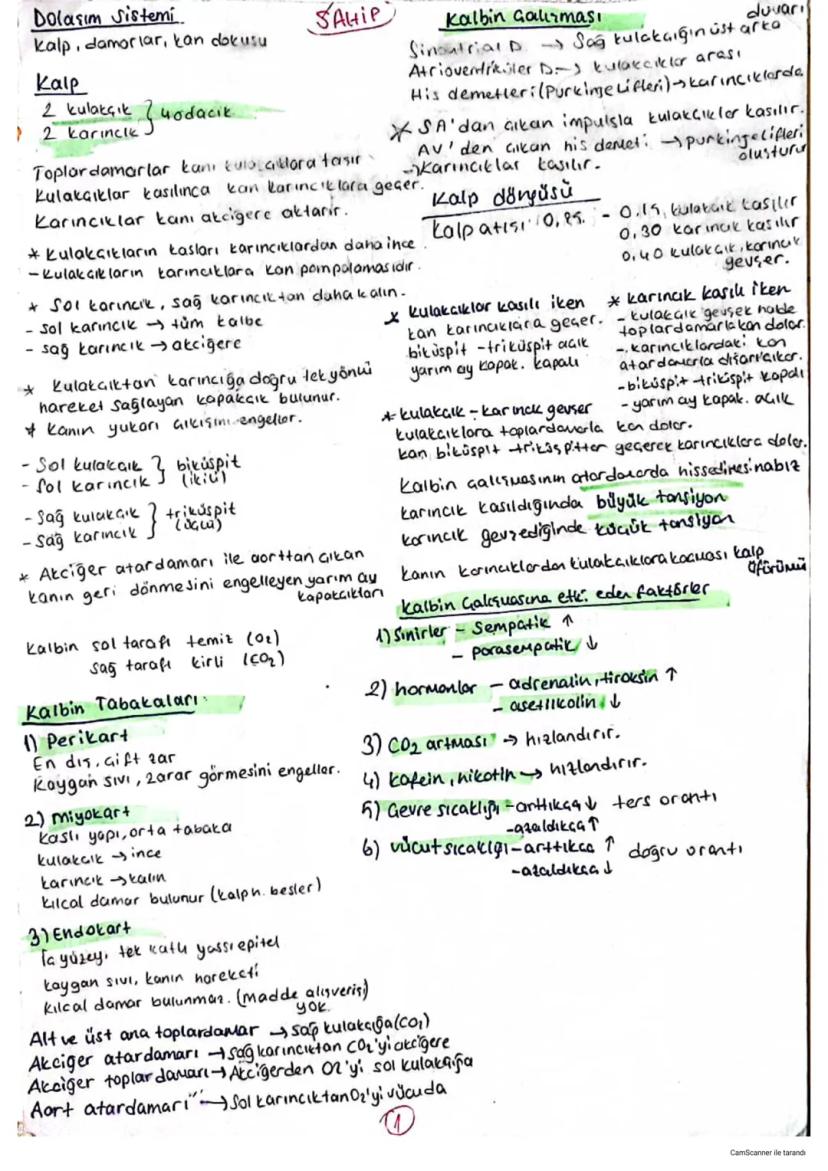 Dolaşım Sistemi
Kalp, damarlar, kan dokusu
ŞAHİP
Kalp
2 kulakçık
2 karıncık
4 odacık
Toplardamarlar kanı kulakçıklara taşır
Kulakçıklar kasılınca kan karıncıklara geçer.
Karıncıklar kanı akciğere aktarır.
* Kulakçıkların kasları karıncıklardan daha ince
- Kulakçıkların karıncıklara kan pompalamasıdır.
* Sol karıncık, sağ karıncıktan daha kalın.
- sol karıncık → tüm kalbe
- sağ karıncık → akciğere
* Kulakçıktan karıncığa doğru tek yönlü
hareket sağlayan kapakçık bulunur.
* Kanın yukarı çıkışını engeller.
- Sol kulakçık
- Sol karıncık
biküspit
(ikili)
- Sağ kulakçık
- Sağ karıncık
triküspit
(üçlü)
* Akciğer atardamarı ile aorttan çıkan
kanın geri dönmesini engelleyen yarım ay
kapakçıkları
Kalbin sol tarafı temiz (O2)
sağ tarafı kirli (CO2)
Kalbin Tabakaları
1) Perikart
En dış, çift zar
Kaygan sıvı, zarar görmesini engeller.
2) Miyokart
Kaslı yapı, orta tabaka
kulakçık → ince
karıncık → kalın
kılcal damar bulunur (kalp h. besler)
3) Endokart
İç yüzey, tek katlı yassı epitel
kaygan sıvı, kanın hareketi
kılcal damar bulunmaz. (madde alışverişi)
yok.
Alt ve üst ana toplardamar → sağ kulakçığa (CO2)
Akciğer atardamarı → sağ karıncıktan CO2'yi akciğere
Akciğer toplardamarı → Akciğerden O2'yi sol kulakçığa
Aort atardamarı → Sol karıncıktan O2'yi vücuda
Kalbin Çalışması
Sinoatrial D. → Sağ kulakçığın üst arka
duvarı
Atrioventriküler D. → kulakçıklar arası
His demetleri (Purkinje Lifleri) → karıncıklarda
* SA'dan çıkan impulsla kulakçıklar kasılır.
AV'den çıkan his demeti → purkinje lifleri
oluşturur
→ Karıncıklar kasılır.
Kalp döngüsü
Kalp atışı 0,85.
- 0.15, kulakçık kasılır
0,30 karıncık kasılır
0,40 kulakçık, karıncık
gevşer.
* kulakcıklar kasılı iken
kan karıncıklara geçer.
biküspit - triküspit açık
yarım ay kapak. kapalı
* karıncık kasılı iken
- kulakçık gevşek halde
toplardamarla kan dolar.
- karıncıklardaki kan
atardamarla dışarı çıkar.
- biküspit - triküspit kapalı
- yarım ay kapak. açık
* kulakcık - karıncık gevşer
kulakcıklara toplardamarla kan dolar.
kan biküspit - triküspitten geçerek karıncıklara dolar.
Kalbin çalışmasının atardamarda hissedilmesi nabız
karıncık kasıldığında büyük tansiyon
karıncık gevşediğinde küçük tansiyon
kanın karıncıklardan kulakcıklara kaçması kalp
üfürümü
Kalbin Çalışmasına etki eden faktörler
1) Sinirler - Sempatik ↑
- parasempatik ↓
2) hormonlar - adrenalin, tiroksin ↑
- asetilkolin ↓
3) CO2 artması → hızlandırır.
4) kafein, nikotin → hızlandırır.
5) Çevre sıcaklığı - arttıkça ↓ ters orantı
- azaldıkça ↑
6) vücut sıcaklığı - arttıkca ↑ doğru orantı
- azaldıkca ↓
1
CamScanner ile tarandı